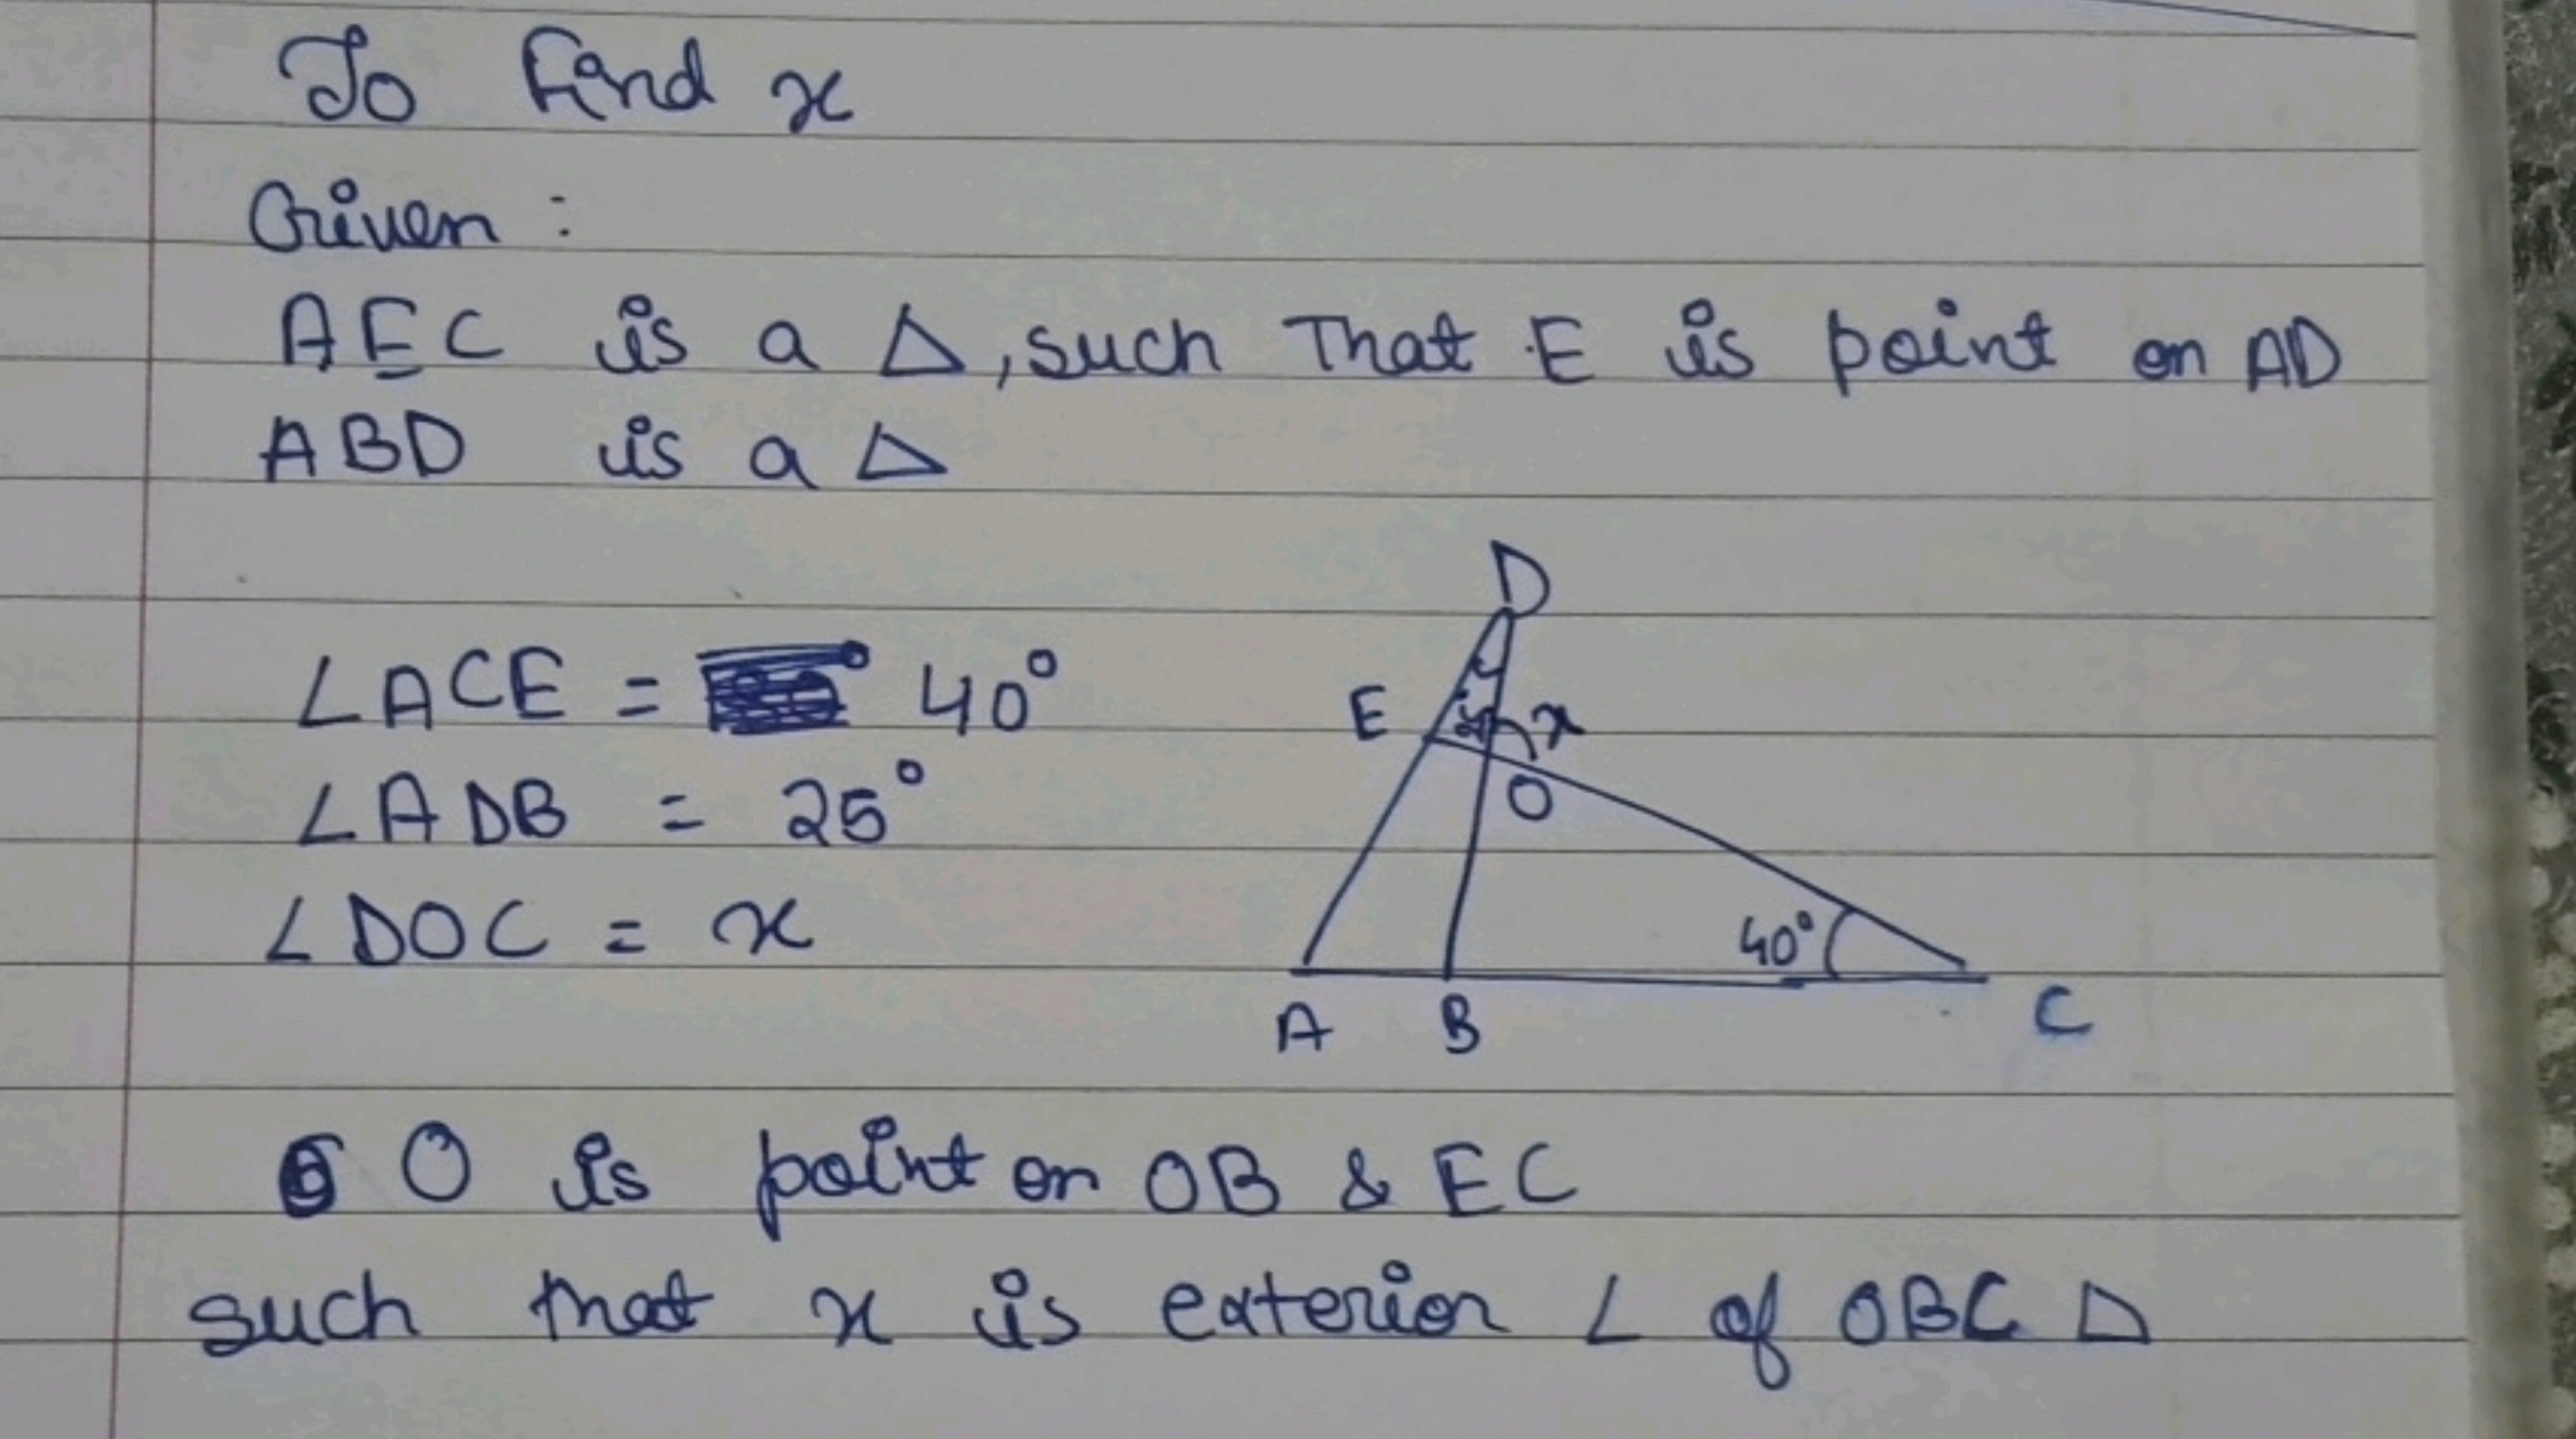 To Find x
Given :
AEC is a Δ, such That E is point on AD
ABD is a Δ
∠ACE = 40°
∠ADB = 25°
∠DOC = x
D
E
x
O
40°
A B C
O is point on OB & EC
such that x is exterior ∠ of OBC Δ